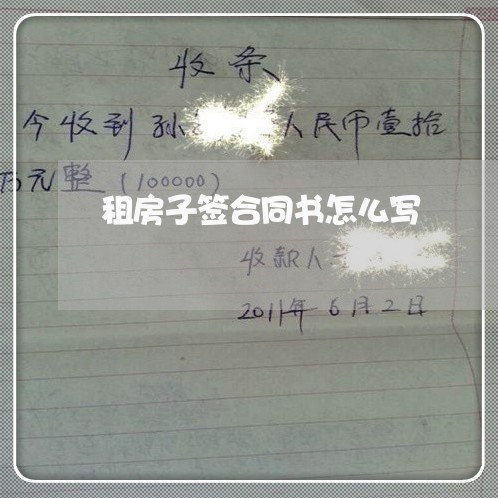 收条
今收到孙 人民币壹拾
万元整(100000)
租房子签合同书怎么写
收款人
2011年6月2日